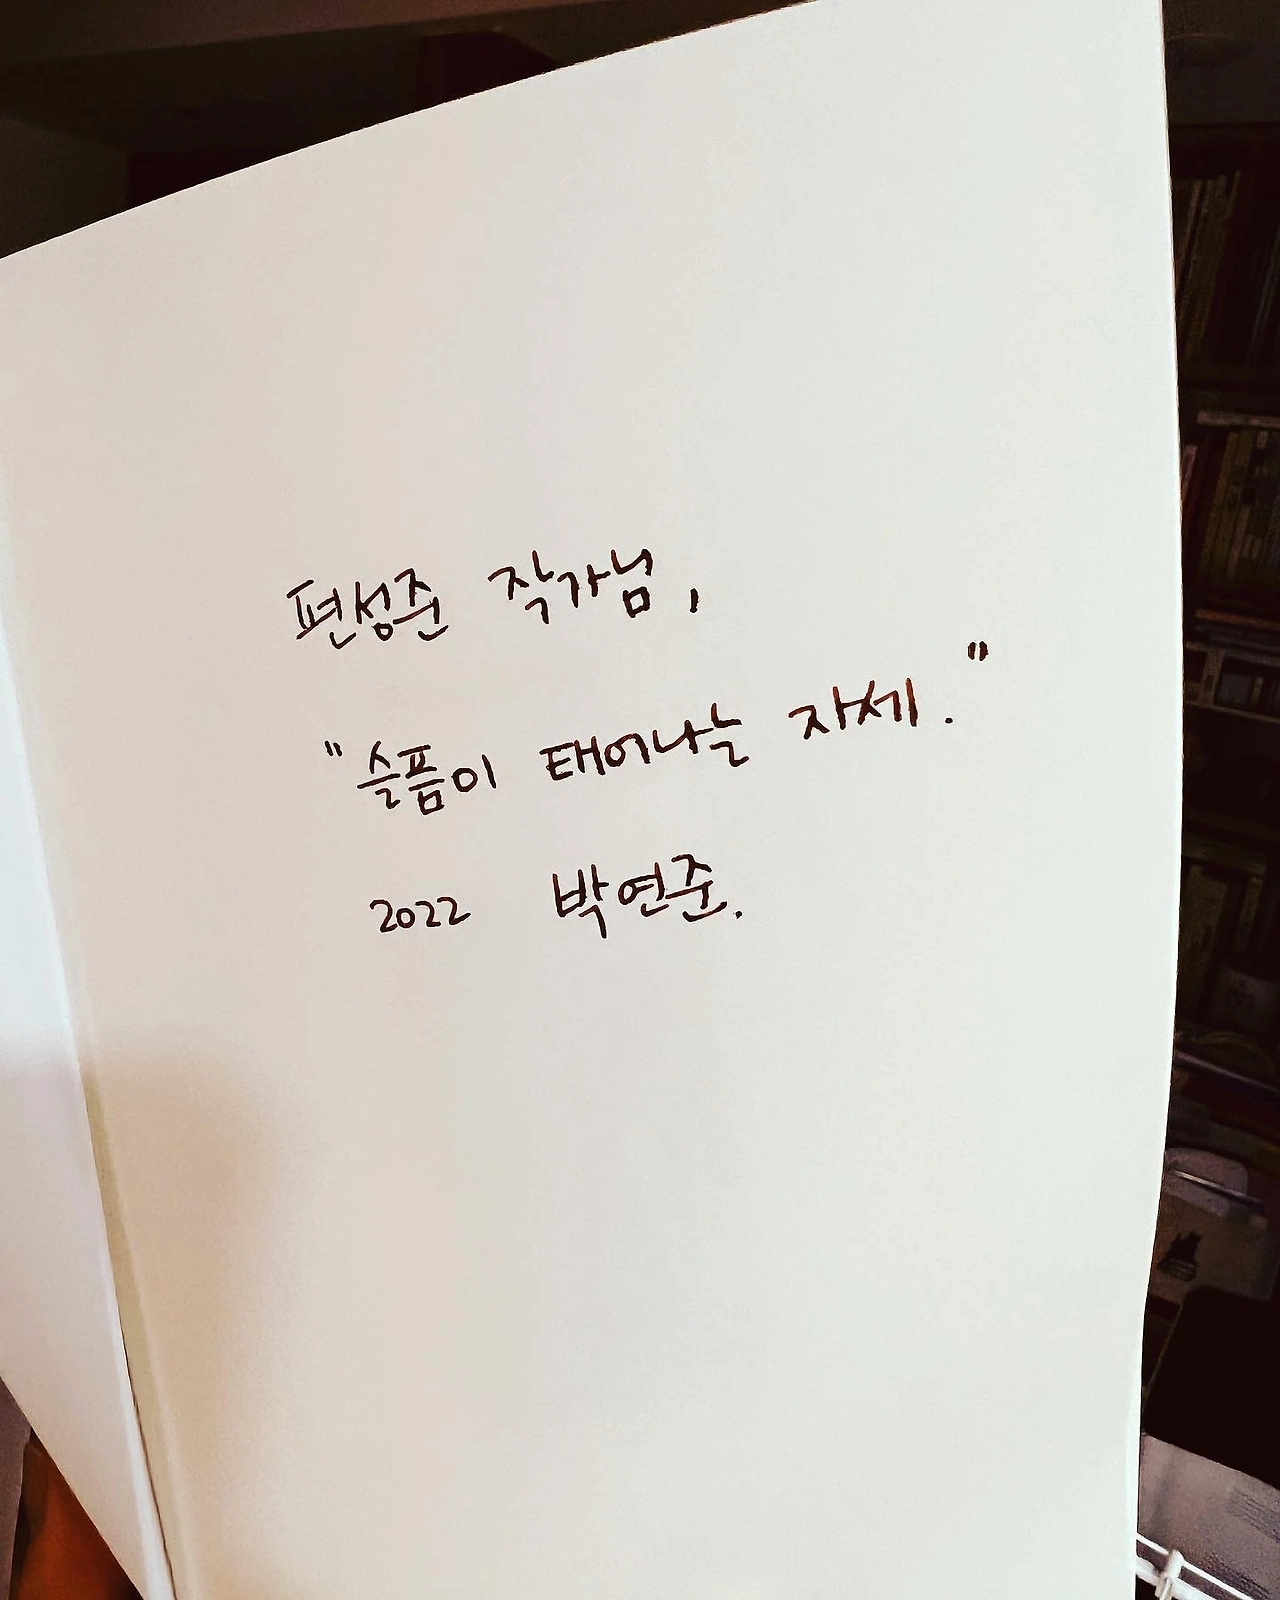 편성준 작가님,
"슬픔이 태어나는 자세."
2022 박연준.